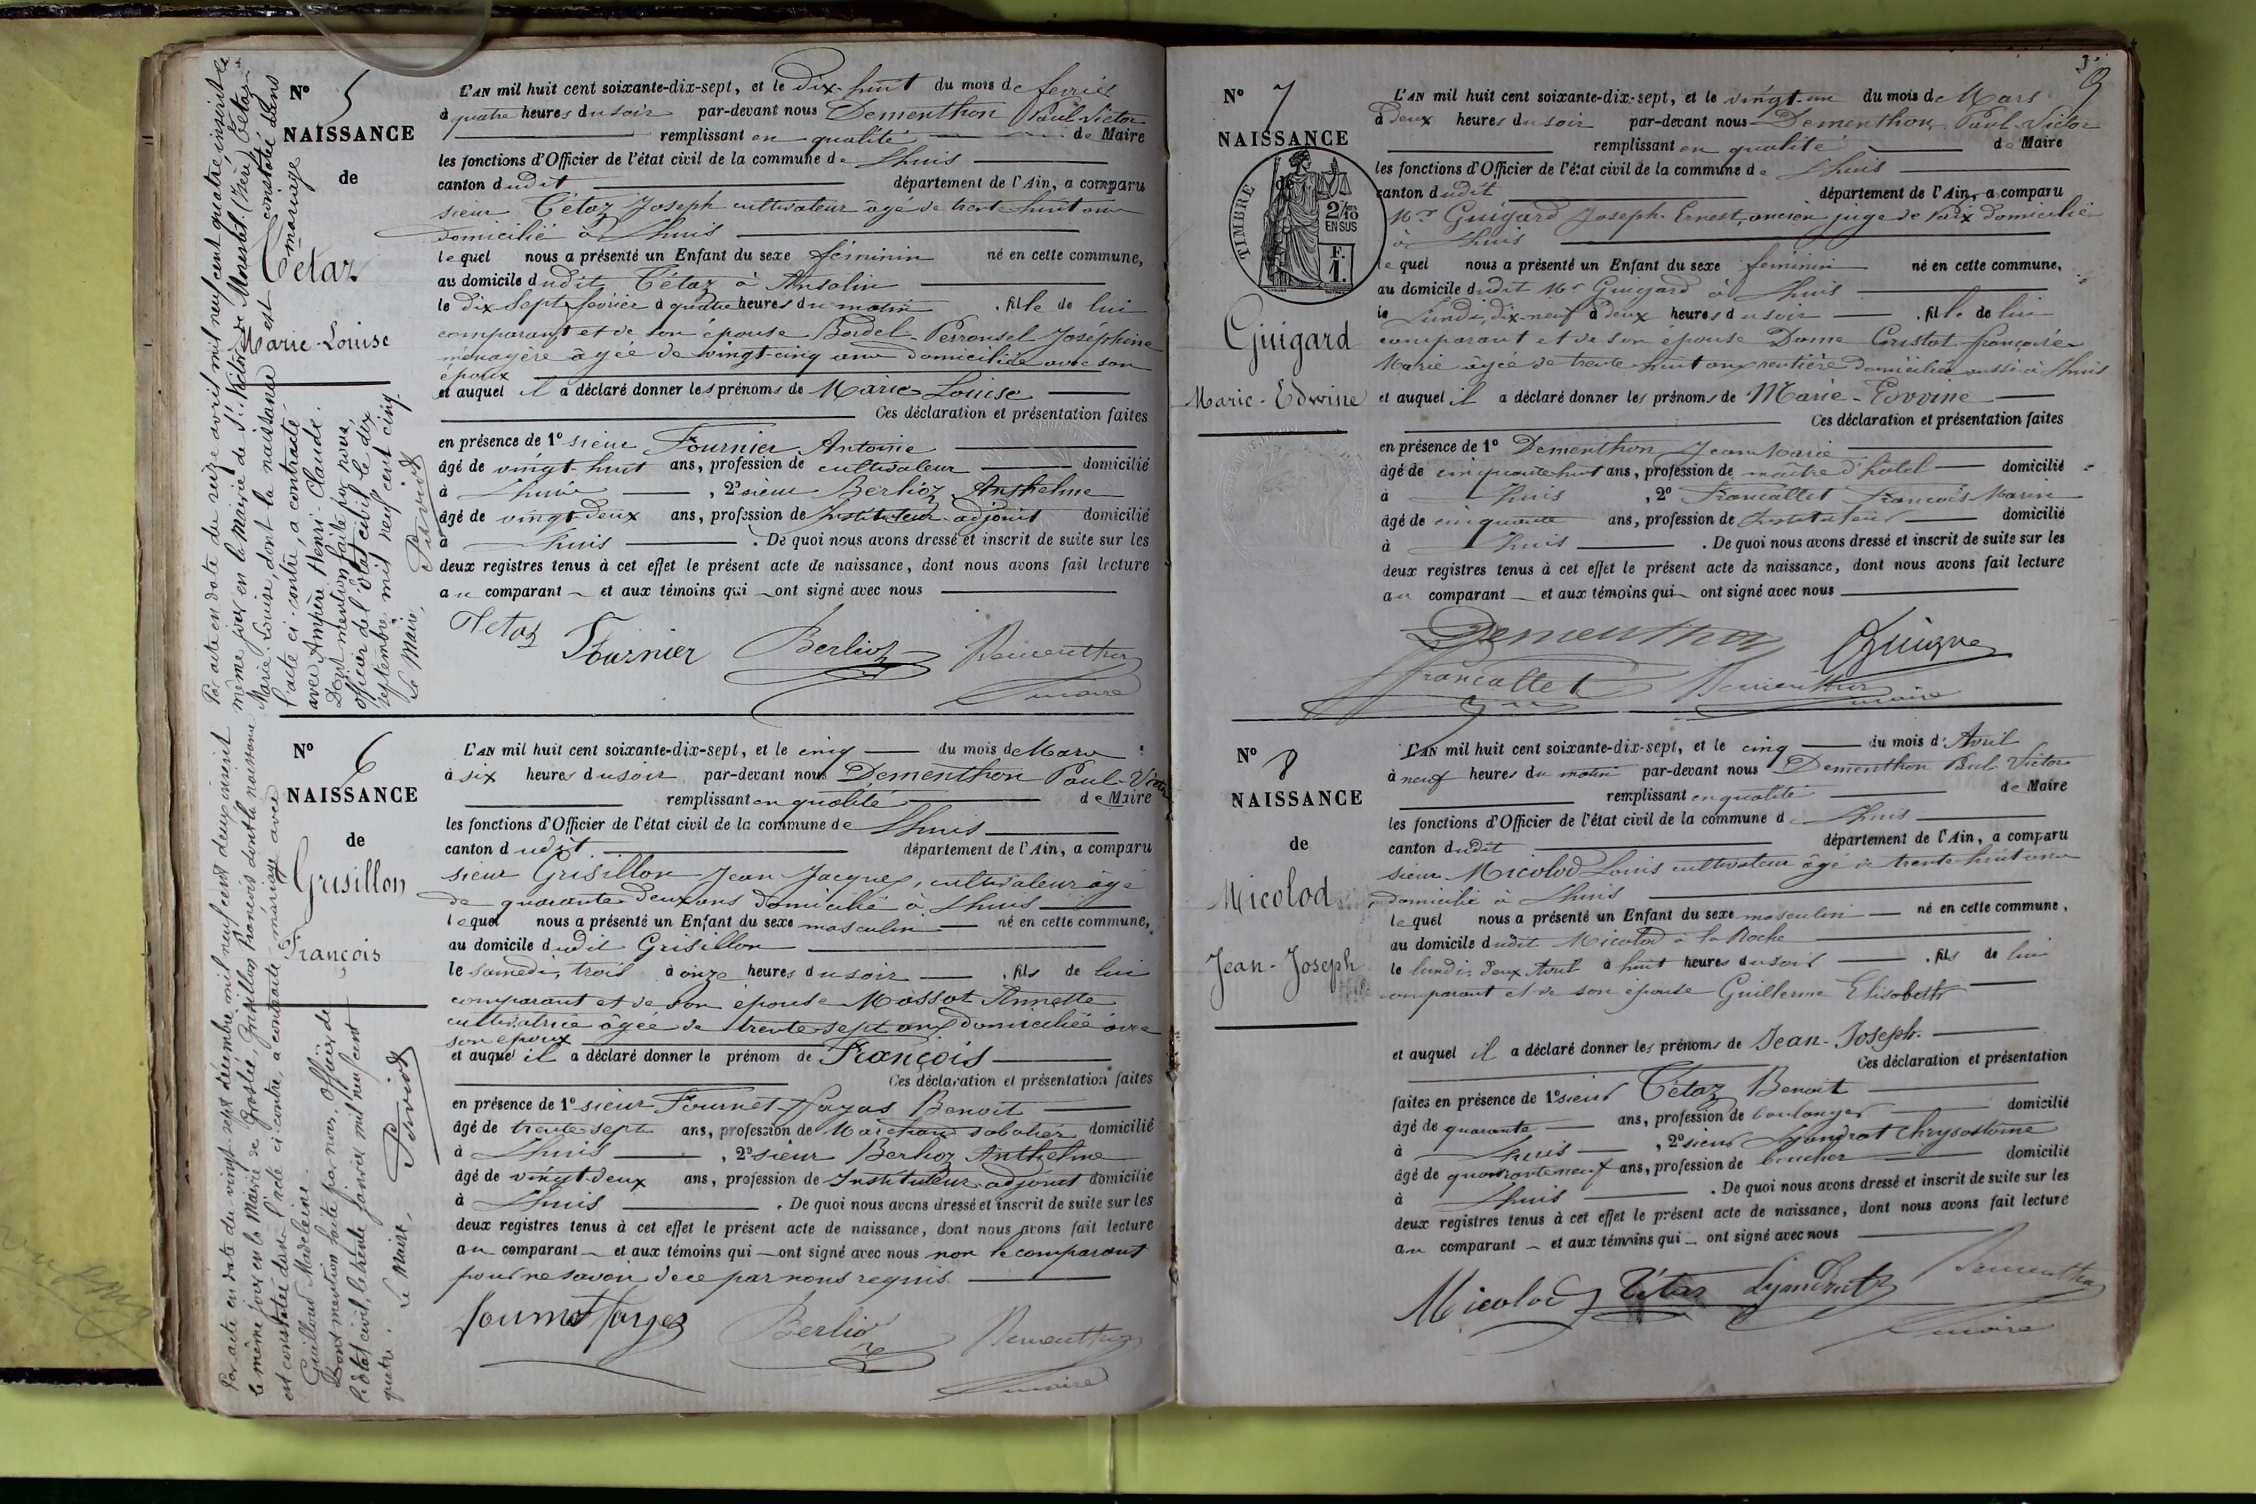 N° 5
NAISSANCE
de
Tétaz
Marie Louise
Par acte en date du seize avril mil neuf cent quatre inscrit le
même jour en la Mairie de Morestel (Isère) Tétaz
Marie Louise, dont la naissance est constatée dans
l'acte ci contre, a contracté mariage
avec Ampère Henri Claude.
Dont mention faite par nous,
officier de l'état civil le dix
septembre mil neuf cent cinq.
Le Maire,
L'AN mil huit cent soixante-dix-sept, et le Dix-huit du mois de février
à quatre heures du soir par-devant nous Dementhon Paul Victor
remplissant en qualité de Maire
les fonctions d'Officier de l'état civil de la commune de Lhuis
canton dudit département de l'Ain, a comparu
sieur Tétaz Joseph cultivateur âgé de trente huit ans
domicilié à Lhuis
lequel nous a présenté un Enfant du sexe féminin né en cette commune,
au domicile dudit Tétaz à Ansolin
le dix sept février à quatre heures du matin, fille de lui
comparant et de son épouse Bordel-Perrousel Joséphine
ménagère âgée de vingt-cinq ans domiciliée avec son
époux
et auquel il a déclaré donner les prénoms de Marie Louise
Ces déclaration et présentation faites
en présence de 1° sieur Fournier Antoine
âgé de vingt-huit ans, profession de cultivateur domicilié
à Lhuis, 2° sieur Berlioz Anthelme
âgé de vingt-deux ans, profession de Instituteur-adjoint domicilié
à Lhuis. De quoi nous avons dressé et inscrit de suite sur les
deux registres tenus à cet effet le présent acte de naissance, dont nous avons fait lecture
au comparant et aux témoins qui ont signé avec nous
Tétaz Fournier Berlioz Dementhon
maire
N° 6
NAISSANCE
de
Grisillon
François
Par acte en date du vingt sept décembre mil neuf cent deux inscrit
le même jour en la Mairie de Groslée, Grisillon François dont la naissance
est constatée dans l'acte ci contre, a contracté mariage avec
Guilloud Madeleine.
Dont mention faite par nous, Officier de
l'état civil, le trente janvier mil neuf cent
quatre. Le Maire,
L'AN mil huit cent soixante-dix-sept, et le cinq du mois de Mars
à six heures du soir par-devant nous Dementhon Paul-Victor
remplissant en qualité de Maire
les fonctions d'Officier de l'état civil de la commune de Lhuis
canton dudit département de l'Ain, a comparu
sieur Grisillon Jean Jacques, cultivateur âgé
de quarante deux ans domicilié à Lhuis
lequel nous a présenté un Enfant du sexe masculin né en cette commune,
au domicile dudit Grisillon
le samedi, trois à onze heures du soir, fils de lui
comparant et de son épouse Massot Annette
cultivatrice âgée de trente sept ans domiciliée avec
son époux
et auquel il a déclaré donner le prénom de François
Ces déclaration et présentation faites
en présence de 1° sieur Fournet-Fayas Benoit
âgé de trente sept ans, profession de Marchand sabotier domicilié
à Lhuis, 2° sieur Berlioz Anthelme
âgé de vingt-deux ans, profession de Instituteur-adjoint domicilié
à Lhuis. De quoi nous avons dressé et inscrit de suite sur les
deux registres tenus à cet effet le présent acte de naissance, dont nous avons fait lecture
au comparant et aux témoins qui ont signé avec nous non le comparant
pour ne savoir de ce par nous requis.
Berlioz Dementhon
maire
3
9
N° 7
NAISSANCE
de
TIMBRE
2/10
EN SUS
F.
1.
Guigard
Marie-Edwine
L'AN mil huit cent soixante-dix-sept, et le vingt-un du mois de Mars
à deux heures du soir par-devant nous Dementhon Paul-Victor
remplissant en qualité de Maire
les fonctions d'Officier de l'état civil de la commune de Lhuis
canton dudit département de l'Ain, a comparu
Mr Guigard Joseph-Ernest, ancien juge de Paix domicilié
à Lhuis
lequel nous a présenté un Enfant du sexe féminin né en cette commune,
au domicile dudit Mr Guigard à Lhuis
le Lundi, dix-neuf à deux heures du soir, fille de lui
comparant et de son épouse Dame Françoise
Marie âgée de trente huit ans rentière domiciliée aussi à Lhuis
et auquel il a déclaré donner les prénoms de Marie-Edwine
Ces déclaration et présentation faites
en présence de 1° Dementhon Jean Marie
âgé de cinquante huit ans, profession de maître d'hôtel domicilié
à Lhuis, 2° Francallet François Marin
âgé de cinquante ans, profession de Instituteur domicilié
à Lhuis. De quoi nous avons dressé et inscrit de suite sur les
deux registres tenus à cet effet le présent acte de naissance, dont nous avons fait lecture
au comparant et aux témoins qui ont signé avec nous
Dementhon
Francallet Dementhon
maire
N° 8
NAISSANCE
de
Micolod
Jean-Joseph
L'AN mil huit cent soixante-dix-sept, et le cinq du mois d'Avril
à neuf heures du matin par-devant nous Dementhon Paul Victor
remplissant en qualité de Maire
les fonctions d'Officier de l'état civil de la commune d Lhuis
canton dudit département de l'Ain, a comparu
sieur Micolod Louis cultivateur âgé de trente-huit ans
domicilié à Lhuis
lequel nous a présenté un Enfant du sexe masculin né en cette commune,
au domicile dudit Micolod à la Roche
le lundi, deux Avril à huit heures du soir, fils de lui
comparant et de son épouse Guillerme Elisabeth
et auquel il a déclaré donner les prénoms de Jean-Joseph.
Ces déclaration et présentation
faites en présence de 1° sieur Tétaz Benoit
âgé de quarante ans, profession de boulanger domicilié
à Lhuis, 2° sieur Lyandrat Chrysostome
âgé de quarante neuf ans, profession de boucher domicilié
à Lhuis. De quoi nous avons dressé et inscrit de suite sur les
deux registres tenus à cet effet le présent acte de naissance, dont nous avons fait lecture
au comparant et aux témoins qui ont signé avec nous
Micolod Tétaz Lyandrat Dementhon
maire